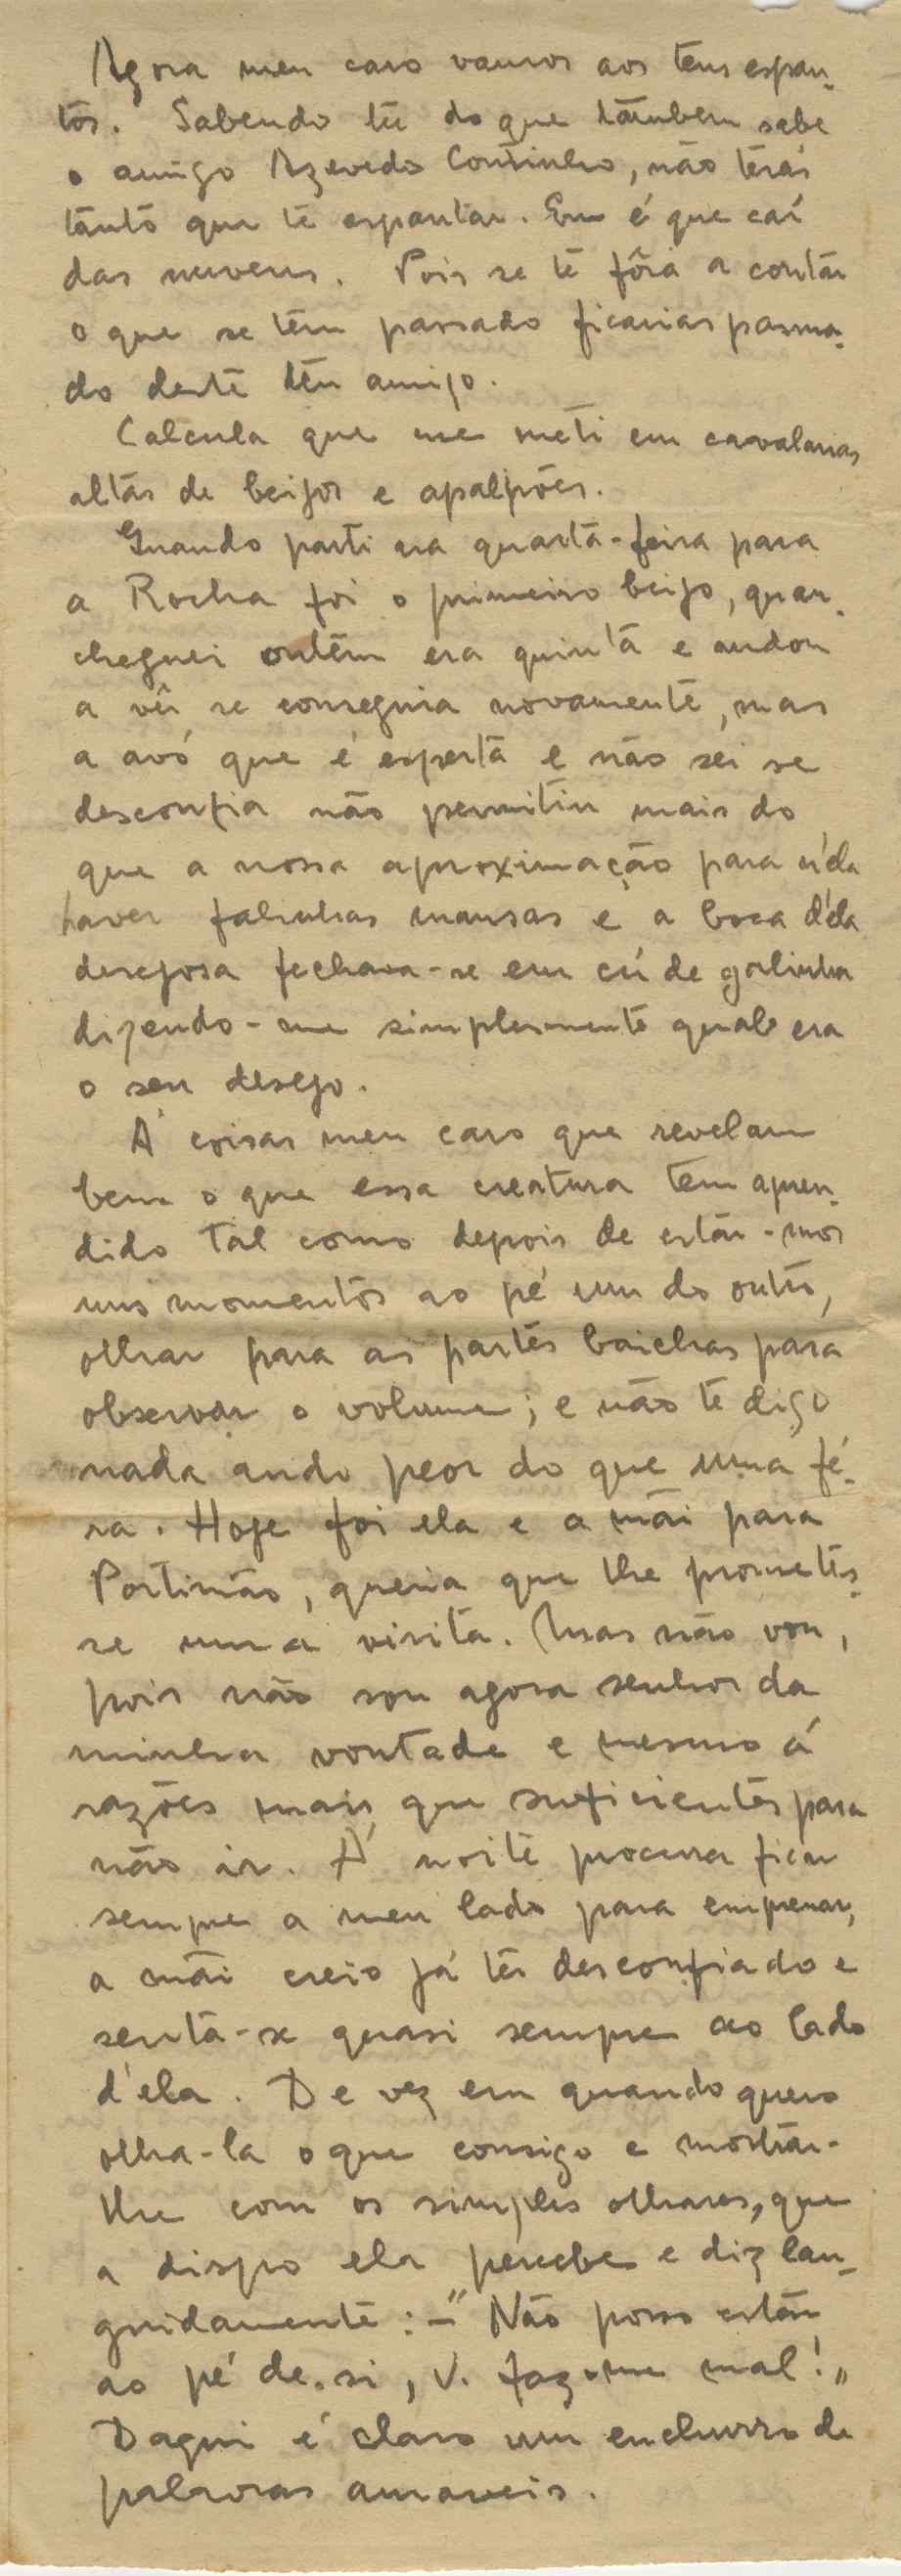 Agora meu caro vamos aos teus espan-
tos. Sabendo tu do que tambem sabe
o amigo Azevedo Coutinho, não terás
tanto que te espantar. Eu é que caí
das nuvens. Pois se te fôra a contar
o que se tem passado ficarias pasma-
do deste teu amigo.
Calcula que me meti em cavalarias
altas de beijos e apalpões.
Quando parti na quarta-feira para
a Rocha foi o primeiro beijo, quan-
cheguei ontem era quinta e andou
a vêr se conseguia novamente, mas
a avó que é esperta e não sei se
desconfia não permitiu mais do
que a nossa aproximação para
haver falinhas mansas e a boca d'ela
desejosa fechava-se em cú de galinha
dizendo-me simplesmente qual era
o seu desejo.
Á coisas meu caro que revelam
bem o que essa creatura tem apren-
dido tal como depois de estar-mos
uns momentos ao pé um do outro,
olhar para as partes baichas para
observar o volume; e não te digo
nada ando peor do que uma fé-
ra. Hoje foi ela e a mãi para
Portimão, queria que lhe prometes-
se uma visita. Mas não vou,
pois não sou agora senhor da
minha vontade e mesmo á
razões mais que suficientes para
não ir. Á noite procura ficar
sempre a meu lado para emprenar,
a mãi creio já ter desconfiado e
senta-se quasi sempre ao lado
d'ela. De vez em quando quero
olha-la o que consigo e mostrar-
lhe com os simples olhares, que
a dispo ela percebe e diz lan-
guidamente: - "Não posso estar
ao pé de si, V. faz-me mal!"
Daqui é claro um enchurro de
palavras amaveis.